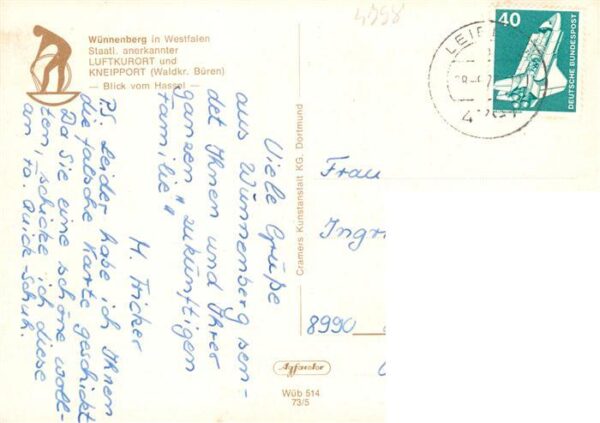 4798
Wünnenberg in Westfalen
Staatl. anerkannter
LUFTKURORT und
KNEIPPORT (Waldkr. Büren)
— Blick vom Hassel —
40
DEUTSCHE BUNDESPOST
Viele Grüße
aus Wünnenberg sen-
det Ihnen und Ihrer
ganzen "zukünftigen
Familie"
H. Fricker
P.S. Leider habe ich Ihnen
die falsche Karte geschickt
Da Sie eine schöne woll-
ten, schicke ich diese
an. Fa. Quick-Schuh.
Cramers Kunstanstalt KG. Dortmund
Frau
Ingr
8990
Agfacolor
Wüb 514
73/5